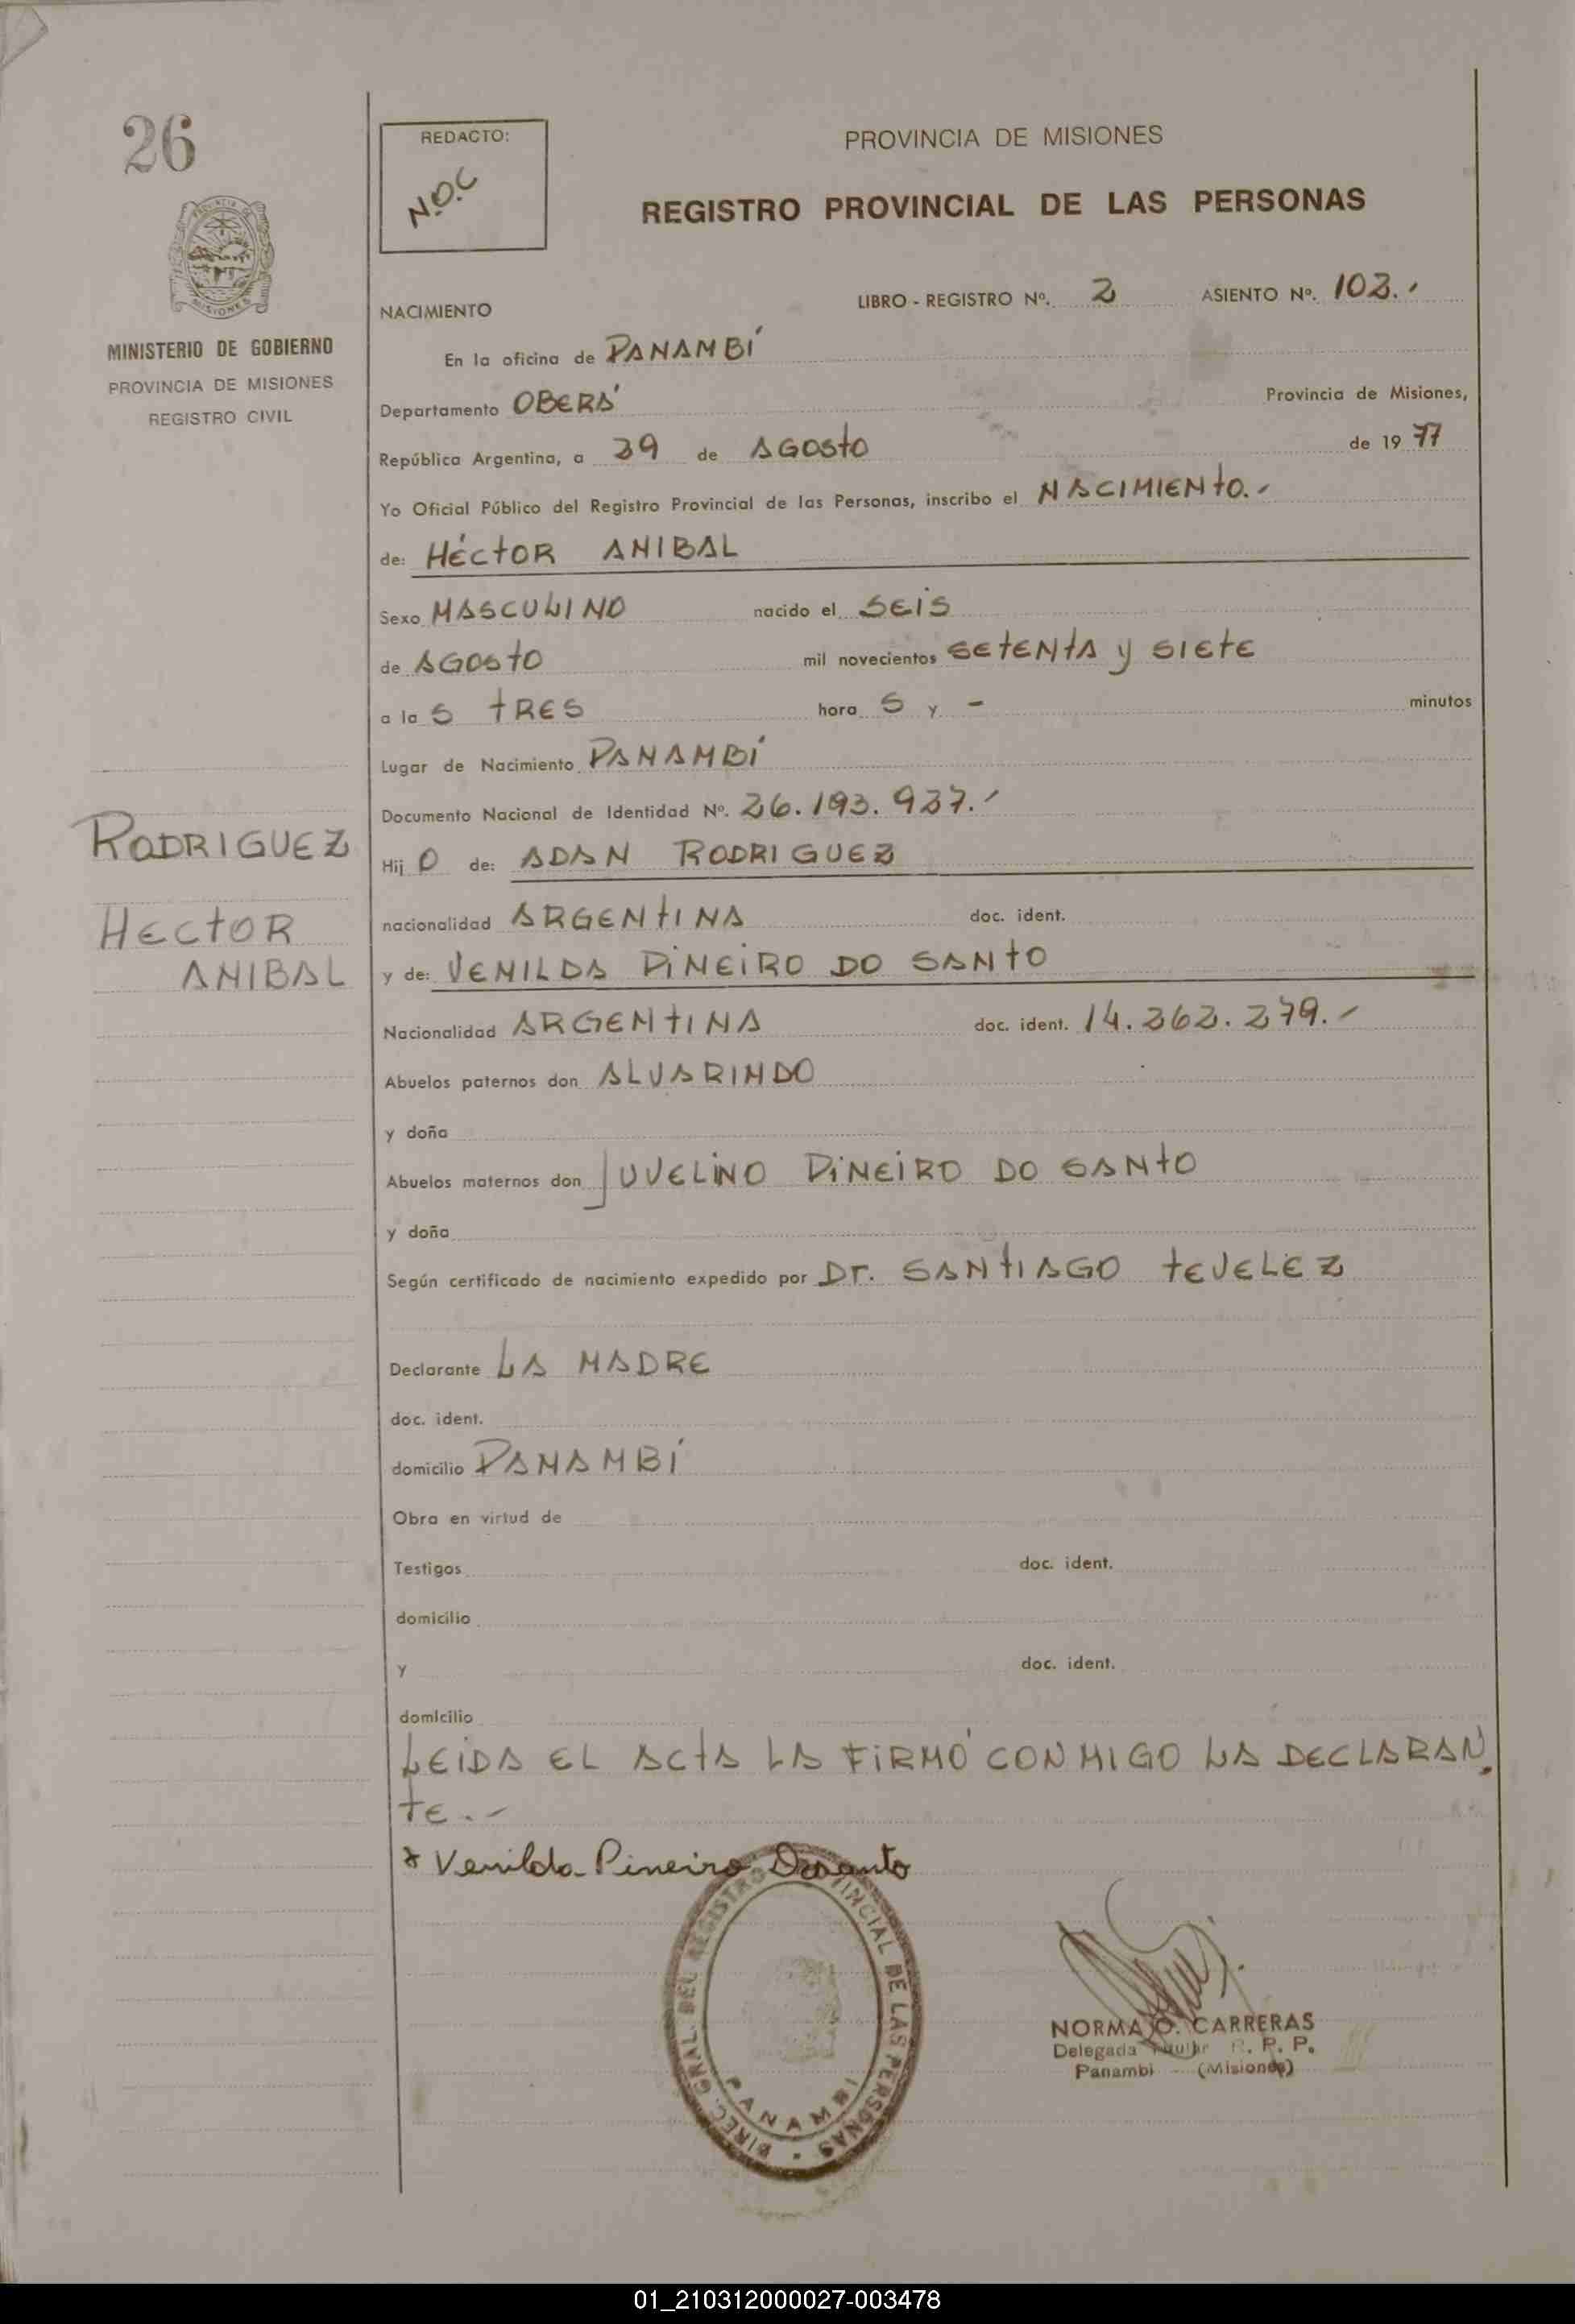 26
REDACTO:
N.O.C
PROVINCIA DE MISIONES
REGISTRO PROVINCIAL DE LAS PERSONAS
MINISTERIO DE GOBIERNO
PROVINCIA DE MISIONES
REGISTRO CIVIL
NACIMIENTO LIBRO - REGISTRO Nº. 2 ASIENTO Nº. 102.-
En la oficina de PANAMBÍ
Departamento OBERÁ Provincia de Misiones,
República Argentina, a 29 de AGOSTO de 1977
Yo Oficial Público del Registro Provincial de las Personas, inscribo el NACIMIENTO.-
de: HÉCTOR ANIBAL
Sexo MASCULINO nacido el SEIS
de AGOSTO mil novecientos SETENTA y SIETE
a la S TRES hora S y - minutos
Lugar de Nacimiento PANAMBÍ
Documento Nacional de Identidad Nº. 26.193.927.-
RODRIGUEZ
HECTOR
ANIBAL
Hij O de: ADAN RODRIGUEZ
nacionalidad ARGENTINA doc. ident.
y de: VENILDA PINEIRO DO SANTO
Nacionalidad ARGENTINA doc. ident. 14.262.279.-
Abuelos paternos don ALVARINDO
y doña
Abuelos maternos don JUVELINO PINEIRO DO SANTO
y doña
Según certificado de nacimiento expedido por Dr. SANTIAGO TEVELEZ
Declarante LA MADRE
doc. ident.
domicilio PANAMBÍ
Obra en virtud de
Testigos doc. ident.
domicilio
y doc. ident.
domicilio
LEIDA EL ACTA LA FIRMÓ CONMIGO LA DECLARAN
TE.-
x Venilda Pineiro Dosanto
DIREC. GRAL. DEL REGISTRO PROVINCIAL DE LAS PERSONAS
PANAMBI
NORMA O. CARRERAS
Delegada Titular R. P. P.
Panambi - (Misiones)
01_210312000027-003478